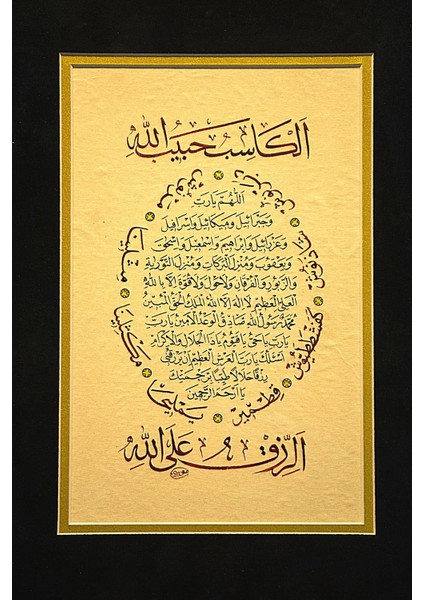 الكاسب حبيب الله
اللهم يا رب
وجبرائيل وميكائيل واسرافيل
وعزرائيل وابراهيم واسمعيل واسحق
ويعقوب ومنزل البركات ومنزل التورية
والزبور والفرقان ولاحول ولاقوة الا بالله
العلي العظيم لا اله الا الله الملك الحق المبين
محمد رسول الله صادق الوعد الامين يا رب
يا رب يا حي يا قيوم يا ذا الجلال والاكرام
نسئلك يا رب العرش العظيم ان ترزقني
رزقا حلالا طيبا برحمتك
يا ارحم الراحمين
يمليخا
مكثلينا
مثلينا
مرنوش
دبرنوش
شاذنوش
كفشططيوش
قطمير
الرزق على الله